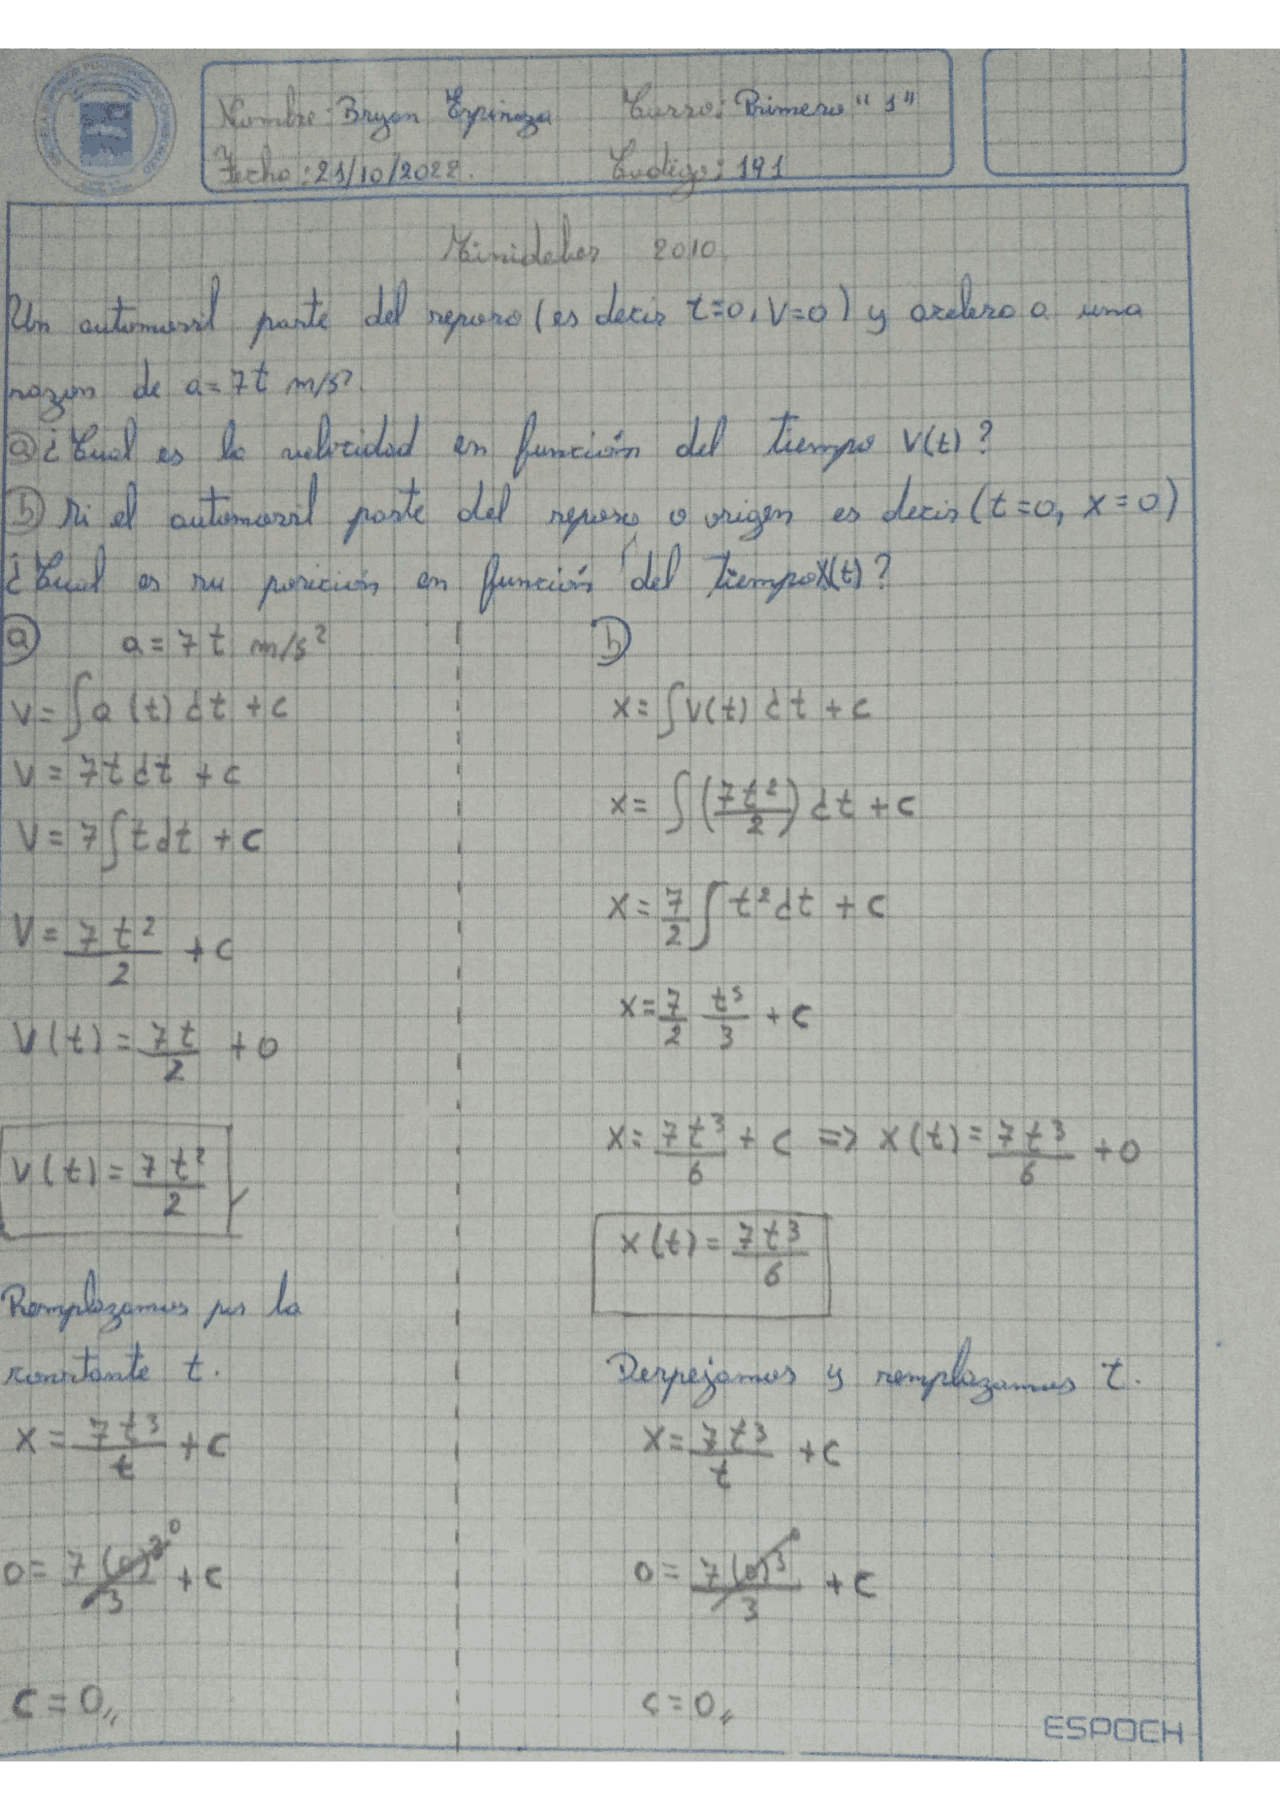 Nombre: Bryan Espinoza Curso: Primero "1"
Fecho: 21/10/2022. Codigo: 191
Minideber 2010.
Un automovil parte del reposo (es decir t=0, V=0) y acelera a una
razon de a=7t m/s².
a) ¿Cual es la velocidad en función del tiempo V(t)?
b) Si el automovil parte del reposo o origen es decir (t=0, x=0)
¿Cual es su posición en función del tiempo X(t)?
a) a=7t m/s²
V=∫a(t)dt+c
V=7tdt+c
V=7∫tdt+c
V=7t²/2+c
V(t)=7t/2+0
V(t)=7t²/2
Remplazamos por la
constante t.
x=7t³/t+c
0=7(0)³/3+c 0
c=0,,
b)
x=∫V(t)dt+c
x=∫(7t²/2)dt+c
x=7/2∫t²dt+c
x=7/2 t³/3+c
x=7t³/6+c => x(t)=7t³/6+0
x(t)=7t³/6
Despejamos y remplazamos t.
x=7t³/t+c
0=7(0)³/3+c 0
c=0,,
ESPOCH